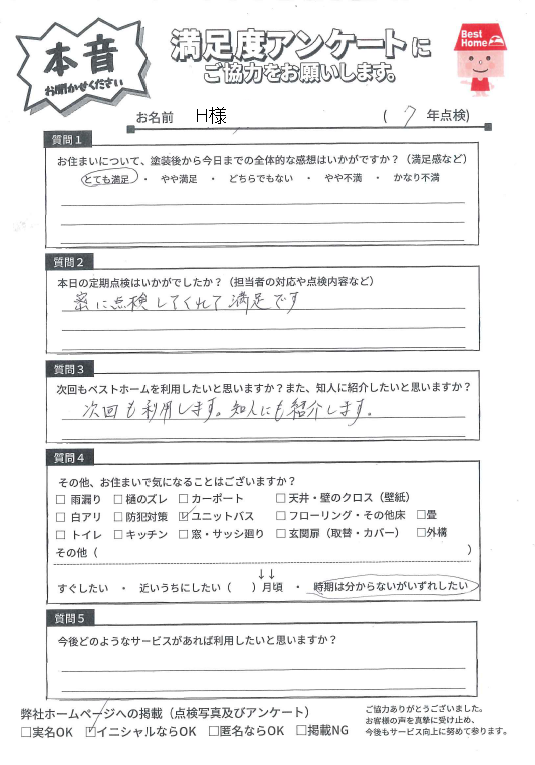 本音
お聞かせください
満足度アンケートに
ご協力をお願いします。
Best Home
お名前 H様 ( 7 年点検)
質問1
お住まいについて、塗装後から今日までの全体的な感想はいかがですか？（満足感など）
とても満足 ・ やや満足 ・ どちらでもない ・ やや不満 ・ かなり不満
質問2
本日の定期点検はいかがでしたか？（担当者の対応や点検内容など）
密に点検してくれて満足です
質問3
次回もベストホームを利用したいと思いますか？また、知人に紹介したいと思いますか？
次回も利用します。知人にも紹介します。
質問4
その他、お住まいで気になることはございますか？
□ 雨漏り □ 樋のズレ □ カーポート □ 天井・壁のクロス（壁紙）
□ 白アリ □ 防犯対策 ☑ ユニットバス □ フローリング・その他床 □畳
□ トイレ □ キッチン □ 窓・サッシ廻り □ 玄関扉（取替・カバー） □外構
その他（ ）
↓↓
すぐしたい ・ 近いうちにしたい（ ）月頃 ・ 時期は分からないがいずれしたい
質問5
今後どのようなサービスがあれば利用したいと思いますか？
弊社ホームページへの掲載（点検写真及びアンケート）
□実名OK ☑イニシャルならOK □匿名ならOK □掲載NG
ご協力ありがとうございました。
お客様の声を真摯に受け止め、
今後もサービス向上に努めて参ります。